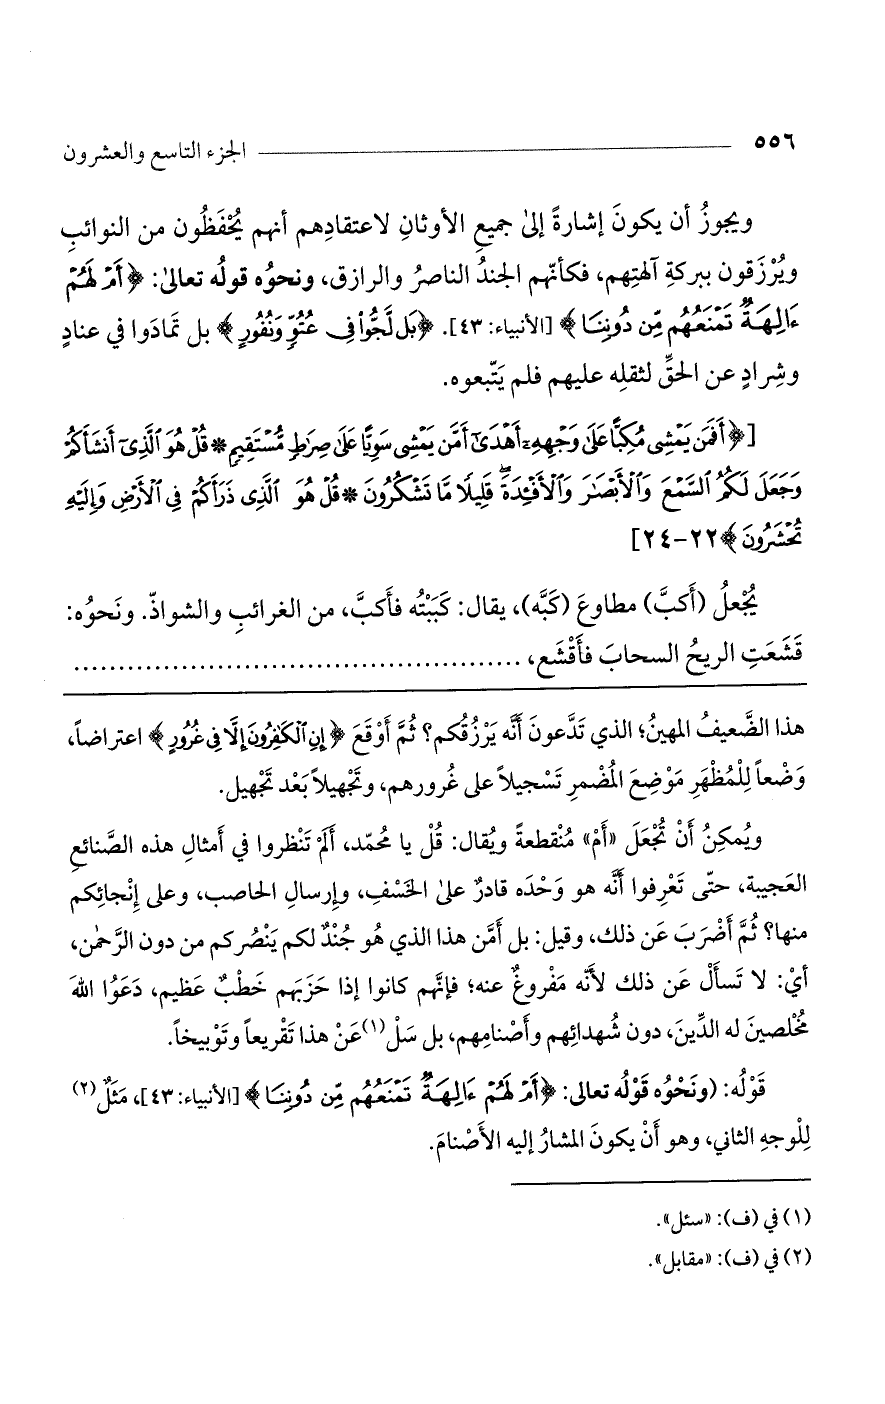 ٥٥٦ الجزء التاسع والعشرون
ويجوزُ أن يكونَ إشارةً إلىٰ جميعِ الأوثانِ لاعتقادِهم أنهم يُحْفَظُون من النوائبِ
ويُرْزَقون ببركةِ آلهتِهم، فكأنّهم الجندُ الناصرُ والرازق، ونحوُه قولُه تعالىٰ: ﴿أَمْ لَهُمْ
ءَالِهَةٌ تَمْنَعُهُم مِّن دُونِنَا﴾ [الأنبياء: ٤٣]. ﴿بَل لَّجُّوا۟ فِى عُتُوٍّ وَنُفُورٍ﴾ بل تمادَوا في عنادٍ
وشِرادٍ عن الحقِّ لثقلِه عليهم فلم يَتّبعوه.
[﴿أَفَمَن يَمْشِى مُكِبًّا عَلَىٰ وَجْهِهِۦٓ أَهْدَىٰٓ أَمَّن يَمْشِى سَوِيًّا عَلَىٰ صِرَٰطٍ مُّسْتَقِيمٍ * قُلْ هُوَ ٱلَّذِىٓ أَنشَأَكُمْ
وَجَعَلَ لَكُمُ ٱلسَّمْعَ وَٱلْأَبْصَٰرَ وَٱلْأَفْـِٔدَةَ ۖ قَلِيلًا مَّا تَشْكُرُونَ * قُلْ هُوَ ٱلَّذِى ذَرَأَكُمْ فِى ٱلْأَرْضِ وَإِلَيْهِ
تُحْشَرُونَ﴾ ٢٢-٢٤]
يُجْعلُ (أَكبَّ) مطاوعَ (كَبَّه)، يقال: كَبَبْتُه فأَكبَّ، من الغرائبِ والشواذّ. ونَحوُه:
قَشَعَتِ الريحُ السحابَ فأَقْشَع، ................................................
هذا الضَّعيفُ المهينُ؛ الذي تَدَّعونَ أنَّه يَرْزُقُكم؟ ثُمَّ أوْقَعَ ﴿إِنِ ٱلْكَٰفِرُونَ إِلَّا فِى غُرُورٍ﴾ اعتراضاً،
وَضْعاً لِلْمُظْهَرِ مَوْضِعَ المُضْمرِ تَسْجيلاً على غُرورهم، وتَجْهيلاً بَعْد تَجْهيل.
ويُمكِنُ أَنْ تُجْعَلَ «أَمْ» مُنْقطعةً ويُقال: قُلْ يا مُحمّد، أَلَمْ تَنْظروا في أَمثالِ هذه الصَّنائعِ
العَجيبة، حتّى تَعْرِفوا أنَّه هو وَحْدَه قادرٌ علىٰ الخَسْفِ، وإرسالِ الحاصب، وعلى إِنْجائِكم
منها؟ ثُمَّ أَضْرَبَ عَن ذلك، وقيل: بل أمَّن هذا الذي هُو جُنْدٌ لكم يَنْصُركم من دون الرَّحمٰن،
أيْ: لا تَسأَلْ عَن ذلك لأنَّه مَفْروغٌ عنه؛ فإنَّهم كانوا إذا حَزَبَهم خَطْبٌ عَظيم، دَعَوُا اللهَ
مُخْلصينَ له الدِّينَ، دون شُهدائِهم وأَصْنامِهم، بل سَلْ(١) عَنْ هذا تَقْريعاً وتَوْبيخاً.
قَوْلُه: (ونَحْوُه قَوْلُه تعالى: ﴿أَمْ لَهُمْ ءَالِهَةٌ تَمْنَعُهُم مِّن دُونِنَا﴾ [الأنبياء: ٤٣]، مَثَلٌ(٢)
لِلْوجهِ الثاني، وهو أَنْ يكونَ المشارُ إليه الأَصْنامَ.
(١) في (ف): «سئل».
(٢) في (ف): «مقابل».